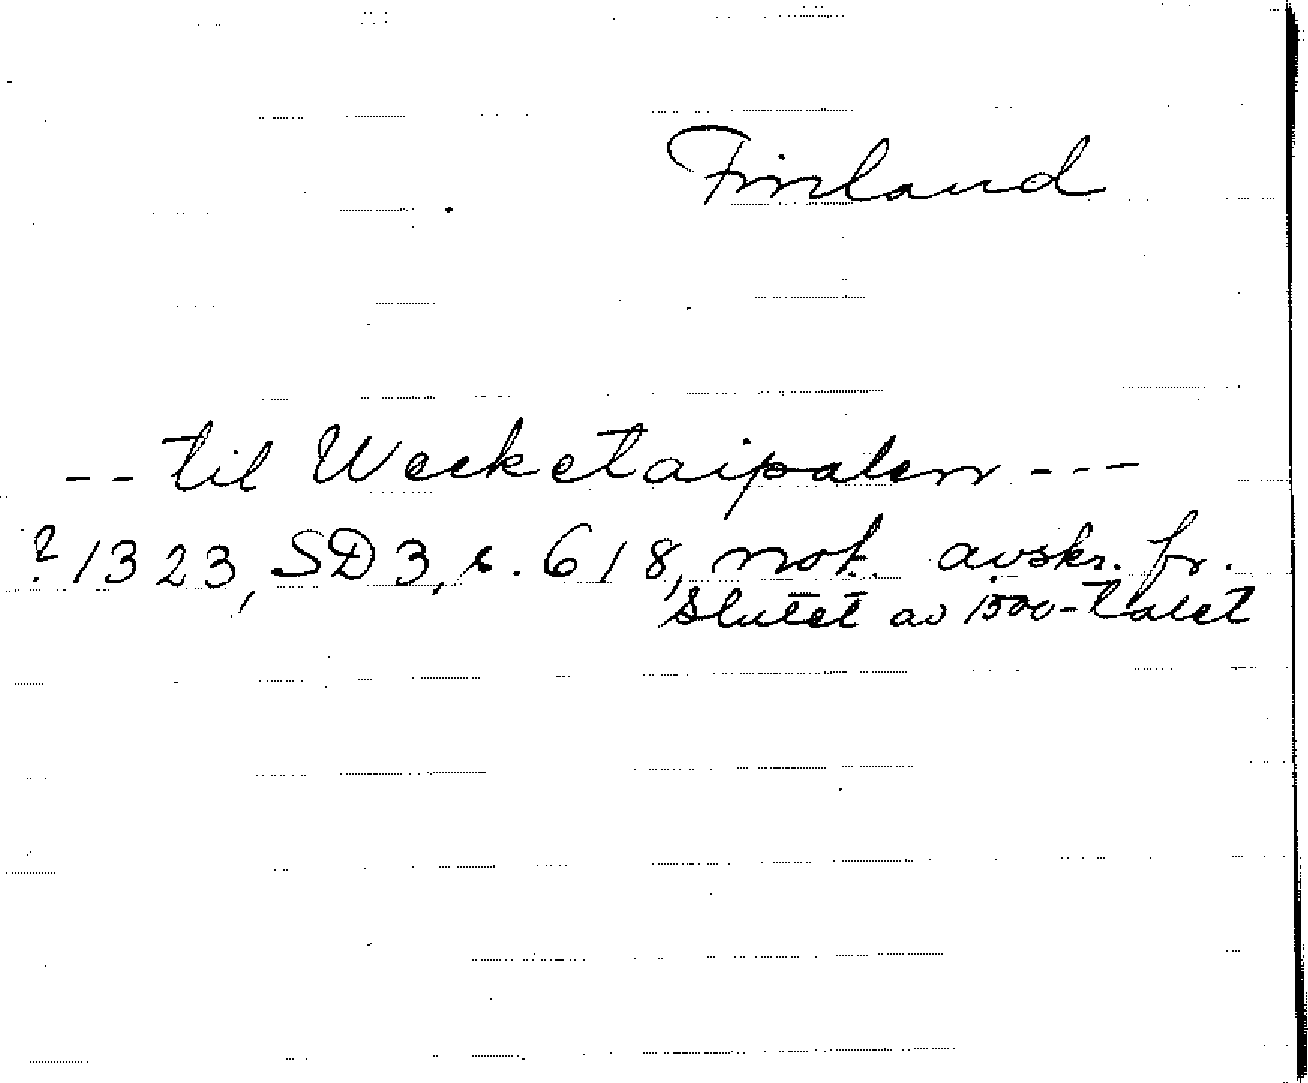 Finland
-- til Wecketaipalen ---
? 1323, SD 3, s. 618, not. avskr. fr.
slutet av 1500-talet